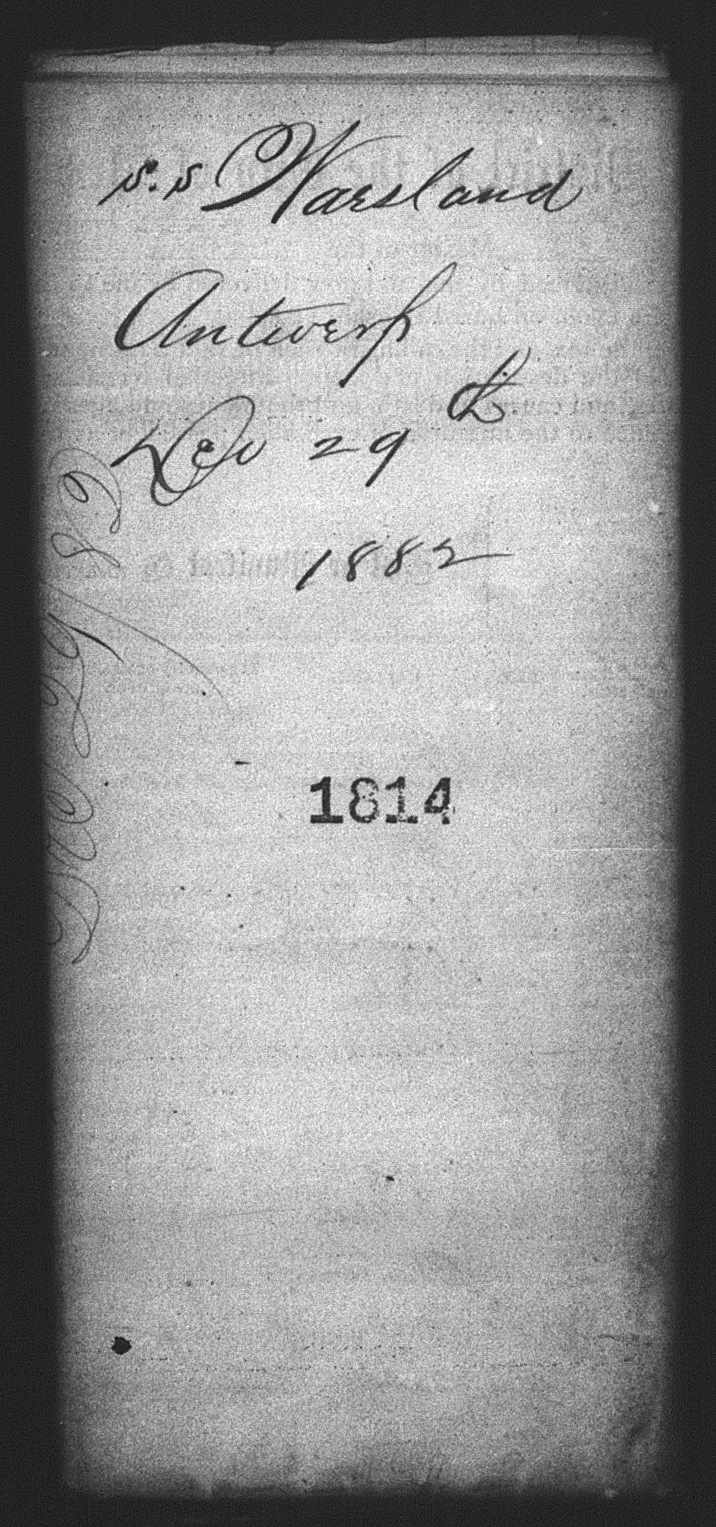 s.s Waesland
Antwerp
Dec 29th
1882
Dec 29/82
1814